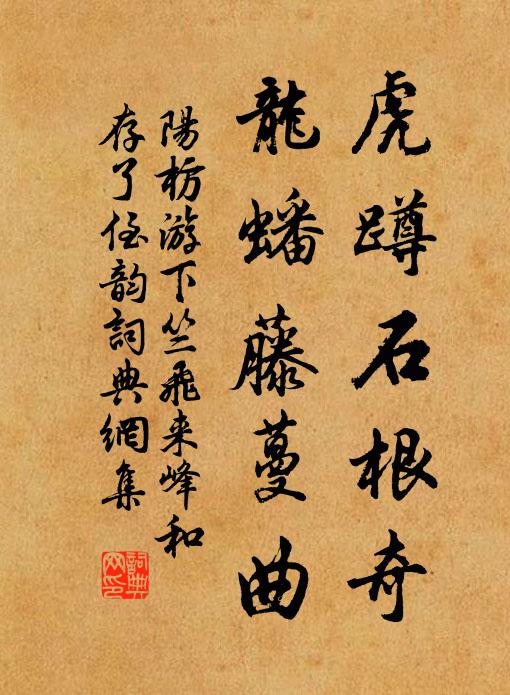 虎蹲石根奇
龍蟠藤蔓曲
陽枋游下竺飛来峰和
存了侄韵詞典網集
詞典网印